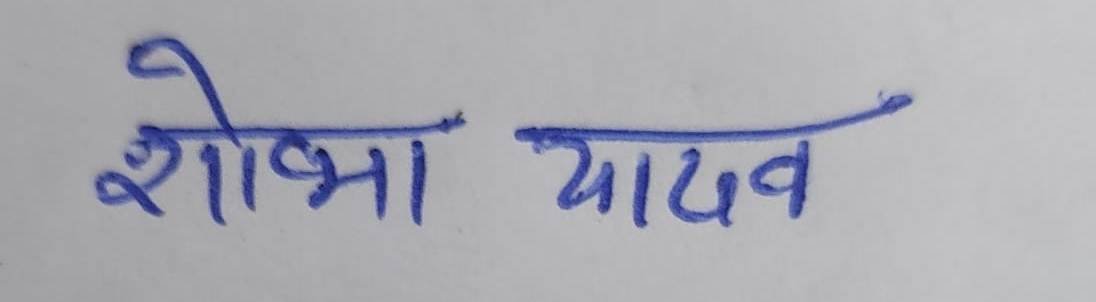 शोभा यादव